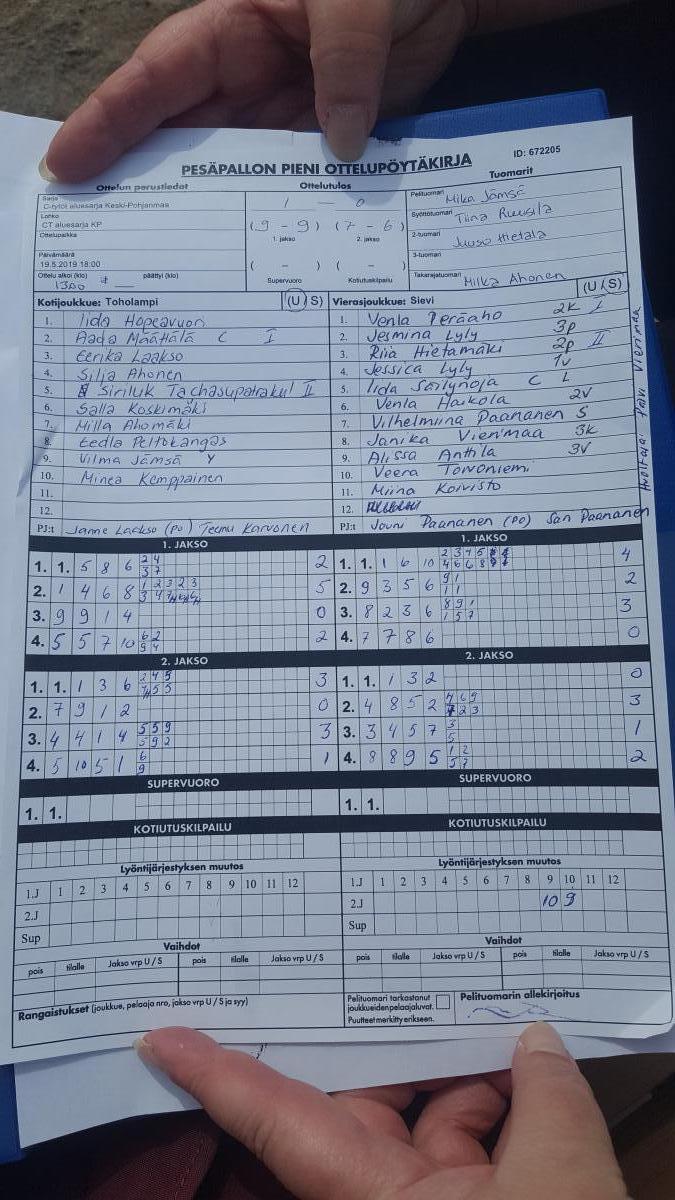 PESÄPALLON PIENI OTTELUPÖYTÄKIRJA
ID: 672205
Ottelun perustiedot
Sarja
C-tytöt aluesarja Keski-Pohjanmaa
Lohko
CT aluesarja KP
Ottelupaikka
Päivämäärä
19.5.2019 18:00
Ottelu alkoi (klo) päättyi (klo)
1300
Ottelutulos
1 — 0
(9 - 9) (7 - 6)
1. jakso 2. jakso
( - ) ( - )
Supervuoro Kotiutuskilpailu
Tuomarit
Pelituomari Mika Jämsä
Syöttötuomari Tiina Ruusila
2-tuomari Juuso Hietala
3-tuomari
Takarajatuomari Milka Ahonen
Kotijoukkue: Toholampi (U/S)
1. Iida Hopeavuori
2. Aada Määttälä C I
3. Eerika Laakso
4. Silja Ahonen
5. Siriluk Tachasupatrakul II
6. Salla Koskimäki
7. Milla Ahomäki
8. Eedla Peltokangas
9. Vilma Jämsä Y
10. Minea Kemppainen
11.
12.
PJ:t Janne Laakso (PO) Teemu Karvonen
Vierasjoukkue: Sievi (U/S)
1. Venla Peräaho 2K I
2. Jesmina Lyly 3p
3. Riia Hietamäki 2p II
4. Jessica Lyly 1v
5. Iida Söilynoja C L
6. Venla Haikola 2V
7. Vilhelmiina Paananen S
8. Janika Vierimaa 3K
9. Alissa Anttila 3V
10. Veera Toivoniemi
11. Miina Koivisto
12.
PJ:t Jouni Paananen (PO) Sari Paananen
Huoltaja: Päivi Vierimaa
1. JAKSO
1. 1. 5 8 6 2 4 2
3 7
2. 1 4 6 8 1 2 3 2 3 5
3. 9 9 1 4 0
4. 5 5 7 10 6 2 2
9 4
1. JAKSO
1. 1. 1 6 10 2 3 4 5 4
4 6 6 8
2. 9 3 5 6 9 1 2
1 1
3. 8 2 3 6 8 9 1 3
1 5 7
4. 7 7 8 6 0
2. JAKSO
1. 1. 1 3 6 2 4 5 3
5 5
2. 7 9 1 2 0
3. 4 4 1 4 5 5 9 3
5 9 2
4. 5 10 5 1 6 1
9
2. JAKSO
1. 1. 1 3 2 0
2. 4 8 5 2 4 6 9 3
2 3
3. 3 4 5 7 3 1
5
4. 8 8 9 5 1 2 2
5 7
SUPERVUORO
1. 1.
SUPERVUORO
1. 1.
KOTIUTUSKILPAILU
KOTIUTUSKILPAILU
Lyöntijärjestyksen muutos
1.J 1 2 3 4 5 6 7 8 9 10 11 12
2.J
Sup
Lyöntijärjestyksen muutos
1.J 1 2 3 4 5 6 7 8 9 10 11 12
2.J 10 9
Sup
Vaihdot
pois tilalle Jakso vrp U / S pois tilalle Jakso vrp U / S
Vaihdot
pois tilalle Jakso vrp U / S pois tilalle Jakso vrp U / S
Rangaistukset (joukkue, pelaaja nro, jakso vrp U / S ja syy)
Pelituomari tarkastanut
joukkueiden pelaajaluvat.
Puutteet merkitty erikseen.
Pelituomarin allekirjoitus